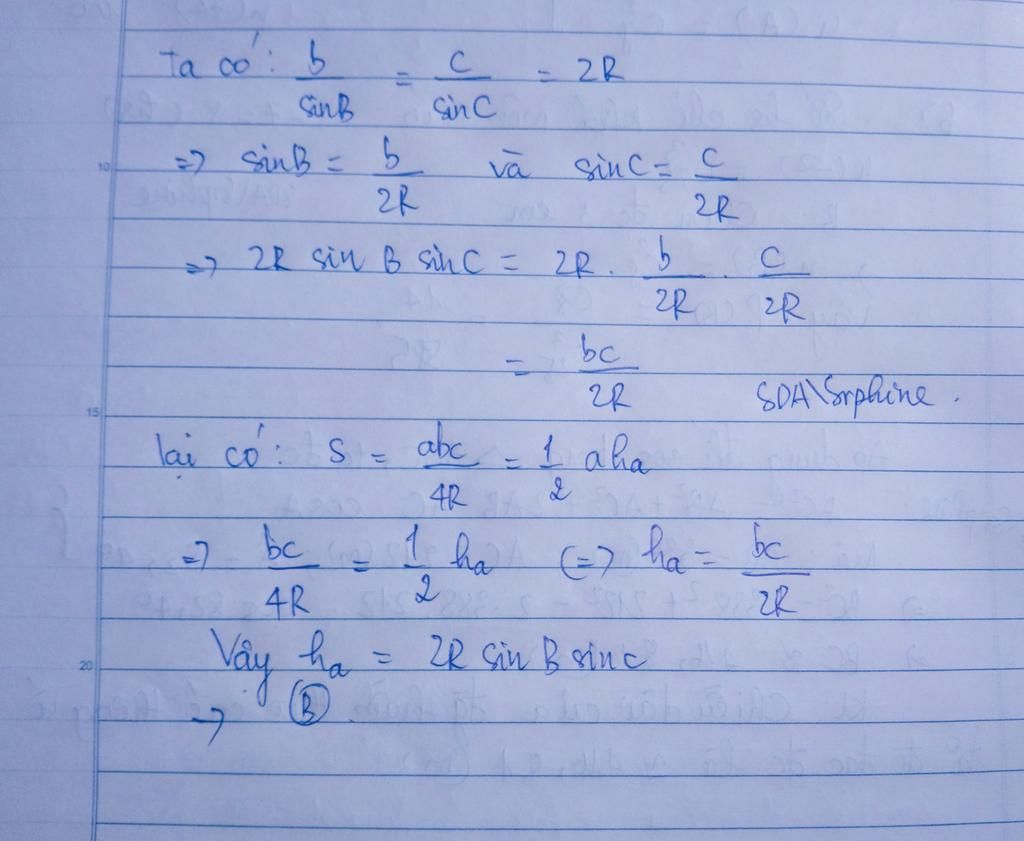 Ta có: b/sinB = c/sinC = 2R
=> sinB = b/2R và sinC = c/2R
=> 2R sin B sinC = 2R . b/2R . c/2R
= bc/2R SDA\Srphine.
lại có: S = abc/4R = 1/2 aha
=> bc/4R = 1/2 ha (=> ha = bc/2R
Vậy ha = 2R sin B sinc
=> B.
10
15
20